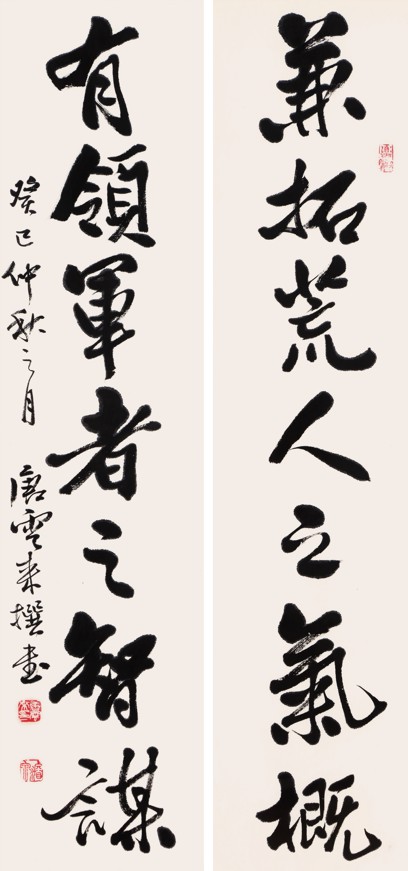 兼拓荒人之氣概
有領軍者之智謀
癸巳仲秋之月 唐雲來撰書